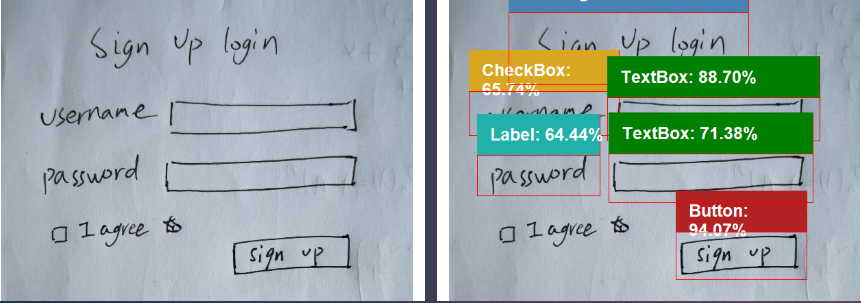 Sign up login
username
password
I agree
sign up
Sign up login
CheckBox: 65.74%
TextBox: 88.70%
username
Label: 64.44%
TextBox: 71.38%
password
Button: 94.07%
I agree
sign up